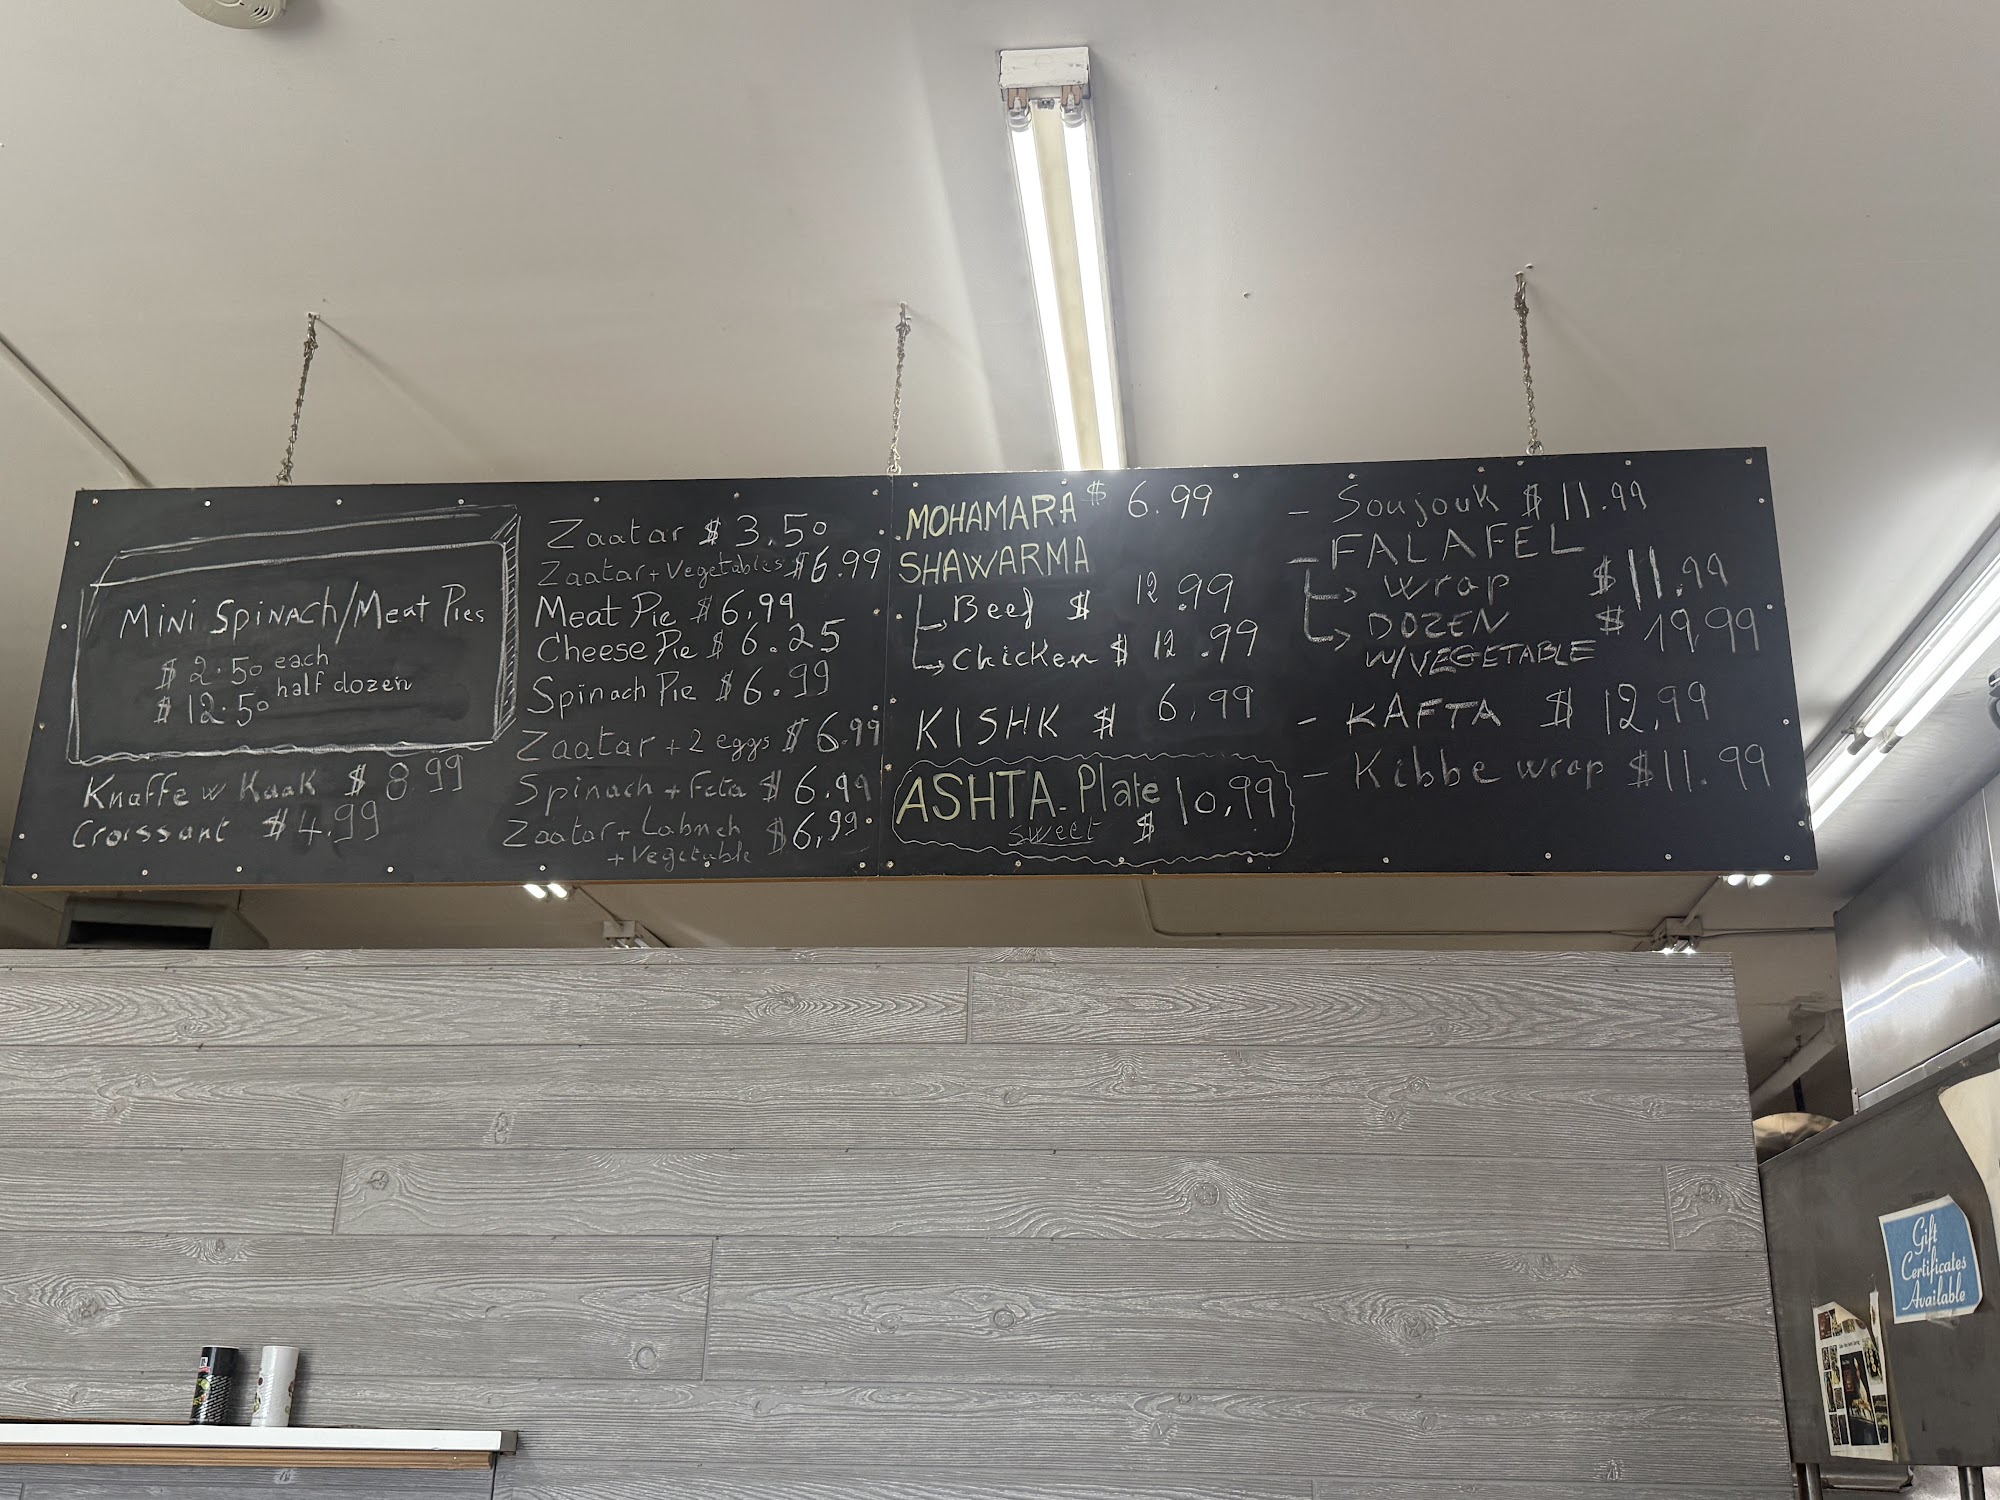 Mini Spinach/Meat Pies
$ 2.50 each
$ 12.50 half dozen
Knaffe w Kaak $ 8.99
Croissant $4.99
Zaatar $ 3.50
Zaatar + Vegetables $6.99
Meat Pie $6.99
Cheese Pie $6.25
Spinach Pie $6.99
Zaatar + 2 eggs $6.99
Spinach + Feta $6.99
Zaatar + Labneh $6.99
+ Vegetable
MOHAMARA $ 6.99
SHAWARMA
Beef $ 12.99
Chicken $ 12.99
KISHK $ 6.99
ASHTA - Plate $ 10.99
sweet
- Soujouk $11.99
- FALAFEL
Wrap $11.99
DOZEN $ 19.99
W/VEGETABLE
- KAFTA $ 12.99
- Kibbe wrap $11.99
Gift
Certificates
Available